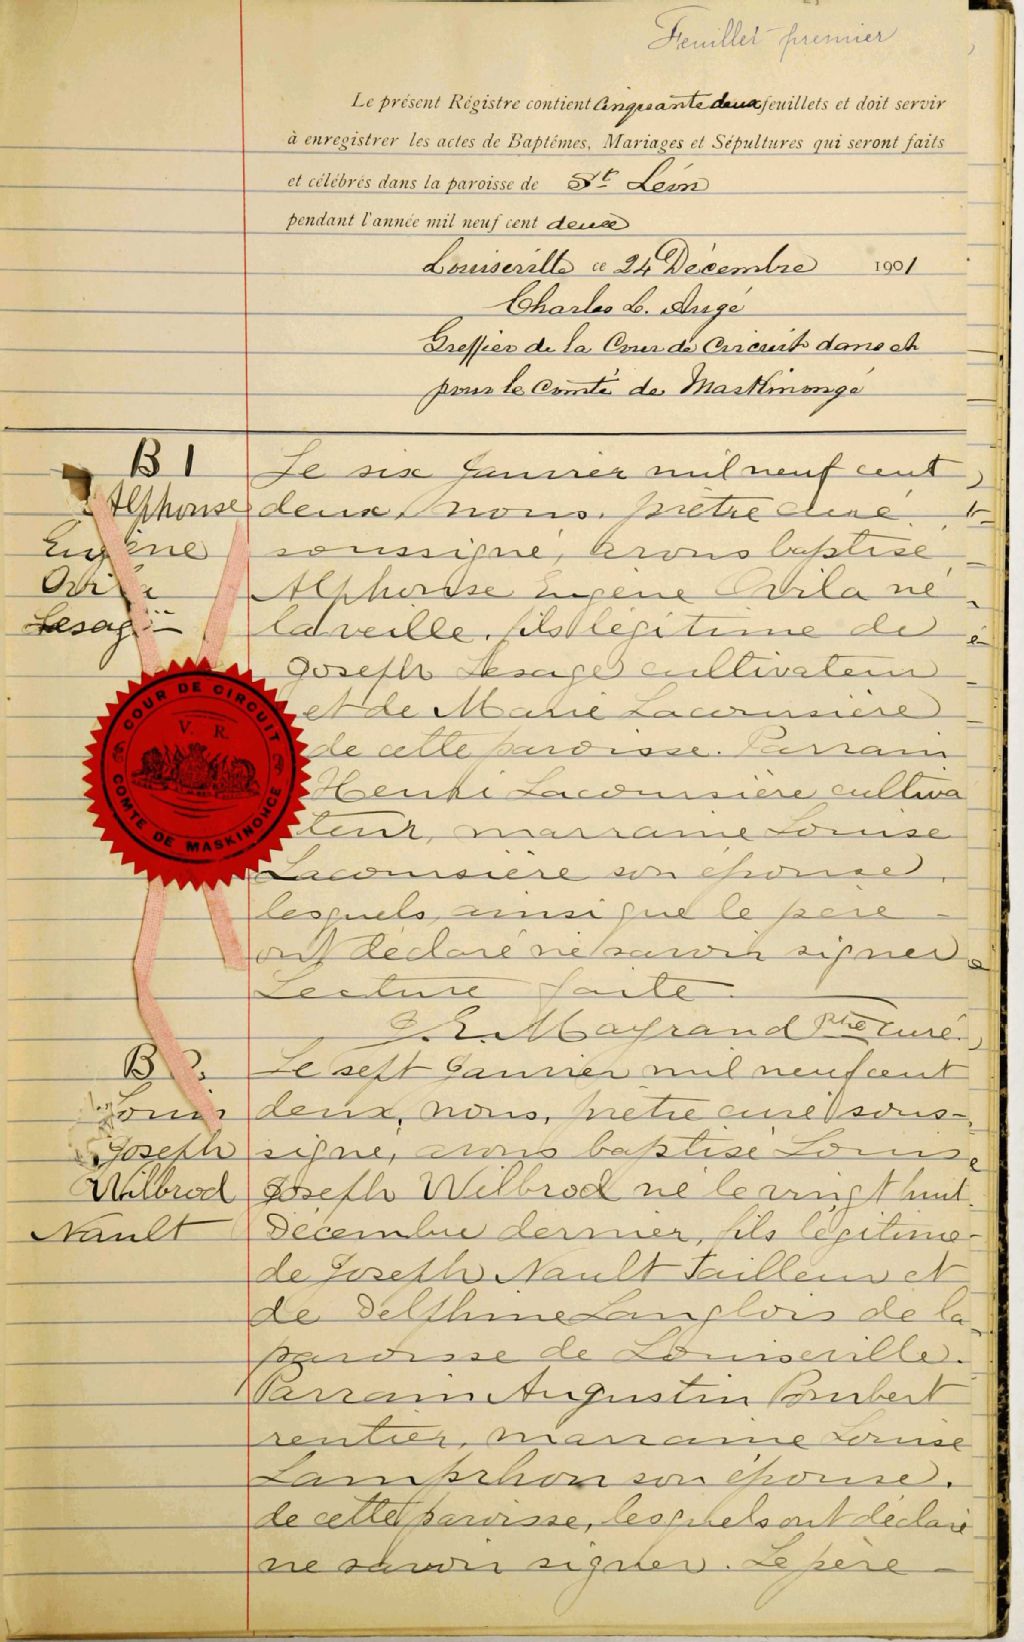 Feuillet premier
Le présent Régistre contient cinquante deux feuillets et doit servir
à enregistrer les actes de Baptêmes, Mariages et Sépultures qui seront faits
et célébrés dans la paroisse de St Léon
pendant l'année mil neuf cent deux
Louiseville ce 24 Décembre 1901
Charles L. Augé
Greffier de la Cour de Circuit dans et
pour le Comté de Maskinongé
B 1
Alphonse
Eugène
Ovila
Lesage
Le six Janvier mil neuf cent
deux, nous, prêtre curé
soussigné, avons baptisé
Alphonse Eugène Ovila né
la veille, fils légitime de
Joseph Lesage cultivateur
et de Marie Lacoursière
de cette paroisse. Parrain
Henri Lacoursière cultiva
teur, marraine Louise
Lacoursière son épouse,
lesquels, ainsi que le père -
ont déclaré ne savoir signer
Lecture faite.
J. E. Mayrand Ptre curé.
COUR DE CIRCUIT
V. R.
COMTE DE MASKINONGE
B 2.
Louis
Joseph
Wilbrod
Nault
Le sept Janvier mil neuf cent
deux, nous, prêtre curé sous-
signé, avons baptisé Louis
Joseph Wilbrod né le vingt huit
Décembre dernier, fils légitime
de Joseph Nault Tailleur et
de Delphine Langlois de la
paroisse de Louiseville.
Parrain Augustin
rentier, marraine Louise
son épouse,
de cette paroisse, lesquels ont déclaré
ne savoir signer. Le père -